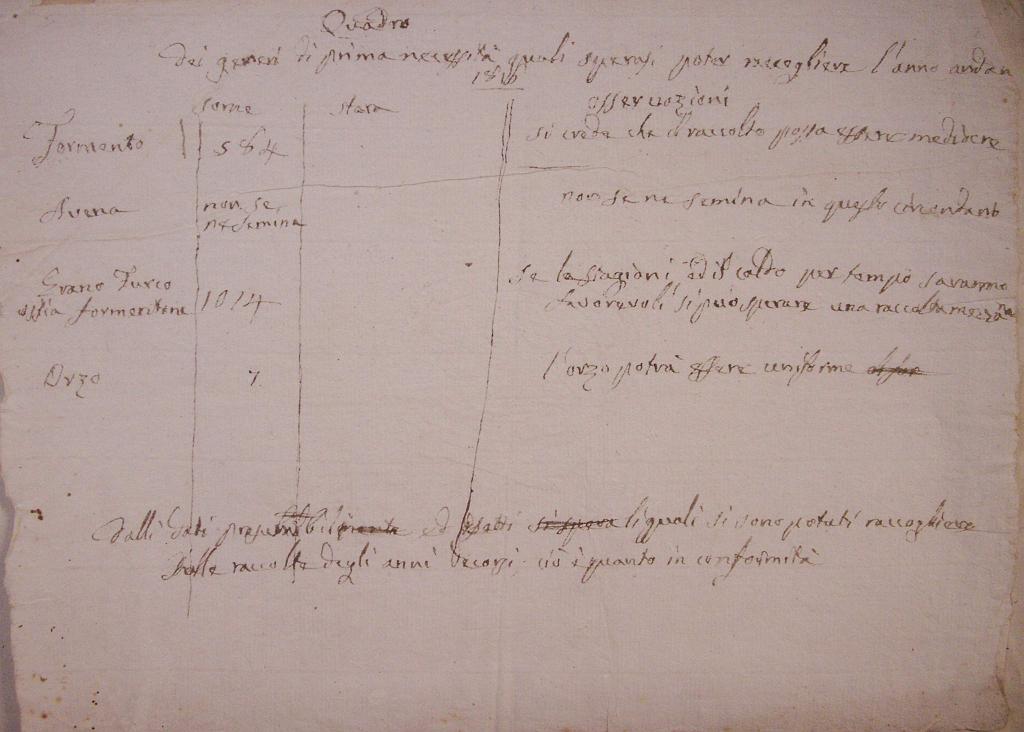 Quadro
Dei generi di prima necessità quali sperasi poter raccogliere l'anno andan
1816
some stara osservazioni
Formento 584 si crede che il raccolto possa essere mediocre
Avena non se ne semina non se ne semina in questo circondario
Grano Turco ossia formentone 1014 se le stagioni, ed il caldo per tempo saranno
favorevoli si può sperare una raccolta mezzana
Orzo 7 l'orzo potrà essere uniforme
Dalli Dati ed esatti li quali si sono potuti raccogliere
dalle raccolte degli anni decorsi, ciò è quanto in conformità